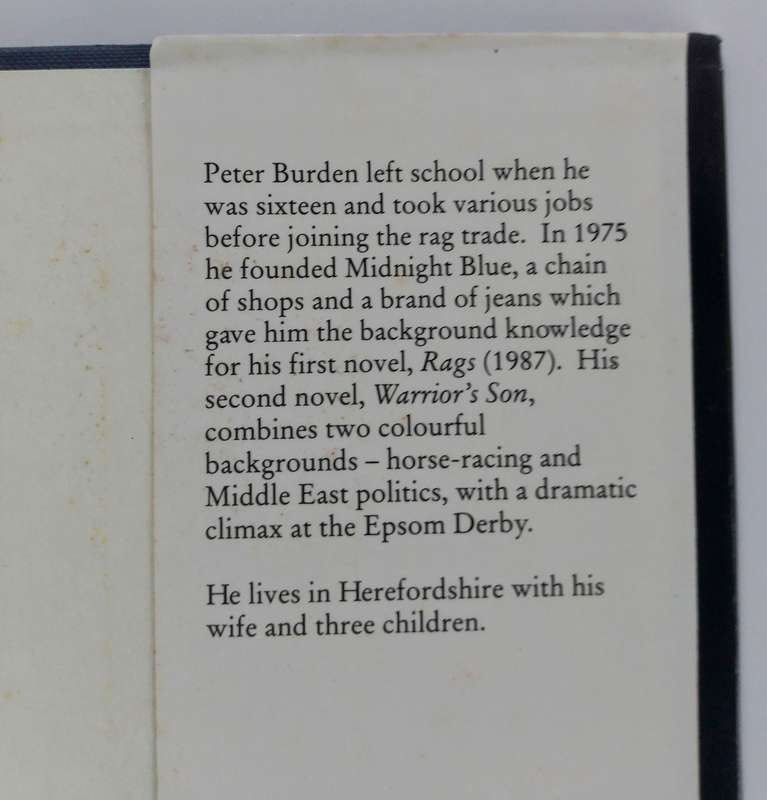 Peter Burden left school when he
was sixteen and took various jobs
before joining the rag trade. In 1975
he founded Midnight Blue, a chain
of shops and a brand of jeans which
gave him the background knowledge
for his first novel, Rags (1987). His
second novel, Warrior's Son,
combines two colourful
backgrounds – horse-racing and
Middle East politics, with a dramatic
climax at the Epsom Derby.
He lives in Herefordshire with his
wife and three children.